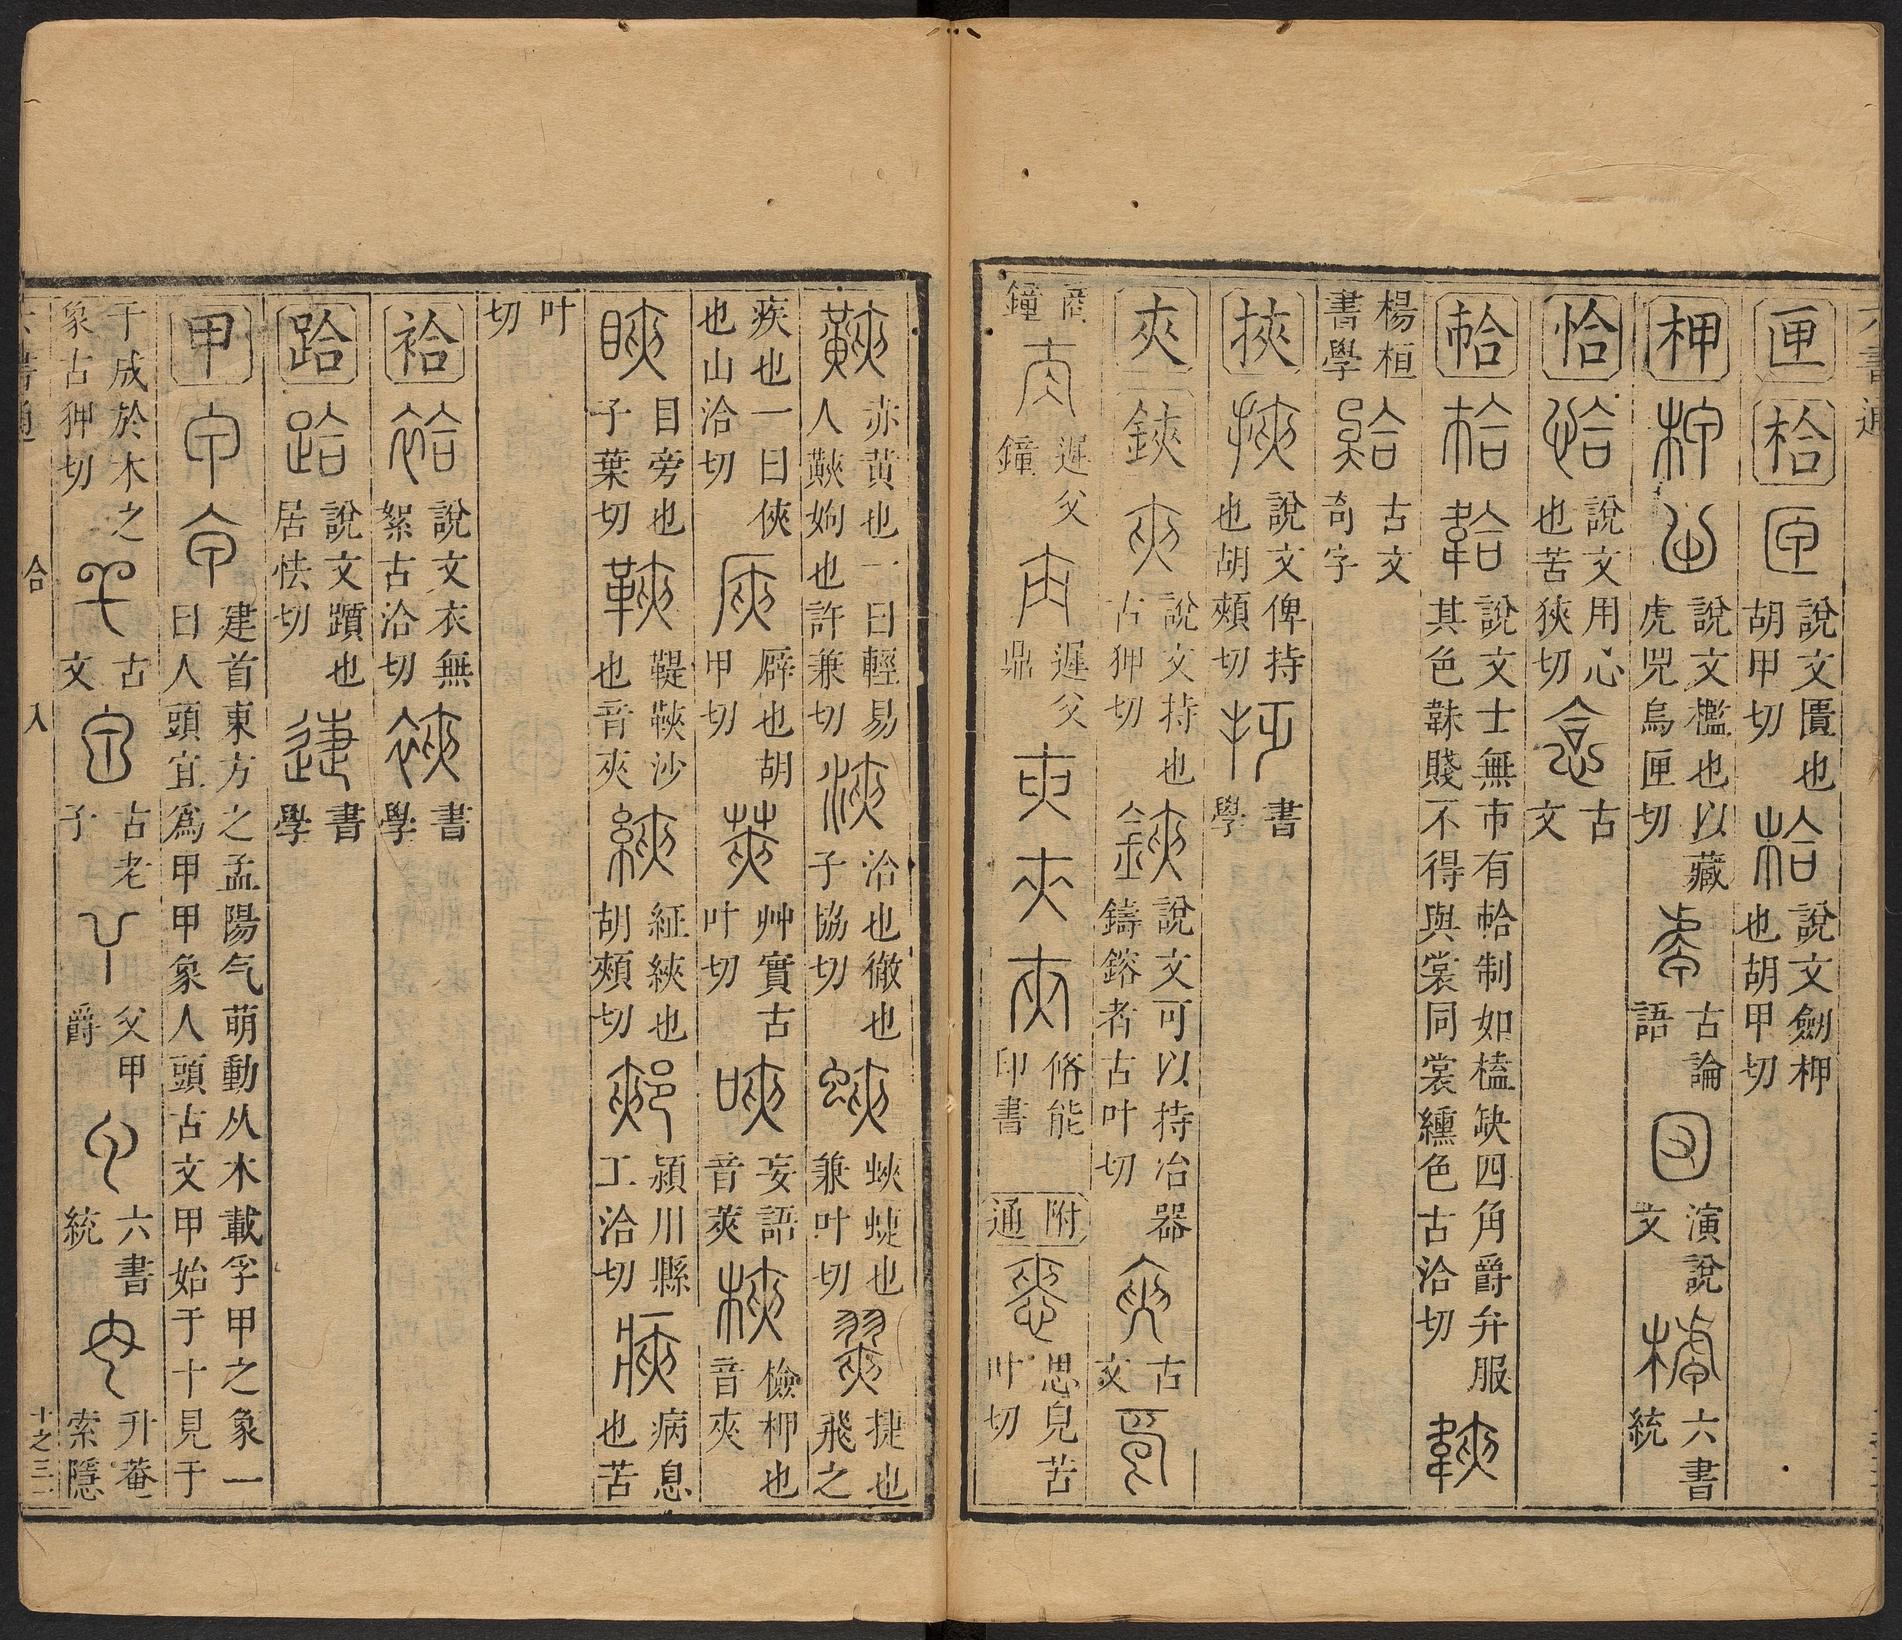 六書通
匣 拾 匣 說文匱也胡甲切 拾 說文劒柙也胡甲切
柙 柙 說文檻也以藏虎兕烏匣切 古論語 演說文 六書統
恰 恰 說文用心也苦狹切 古文
帢 帢 韐 說文士無市有帢制如榼缺四角爵弁服其色韎賤不得與裳同裳纁色古洽切 韎
楊桓書學 古文奇字
挾 挾 說文俾持也胡頰切 書學
夾 鋏 夾 說文持也古狎切 鋏 說文可以持冶器鑄鎔者古叶切 古文
鐘 遲父鐘 遲父鼎 脩能印書 附通 思皃苦叶切
赤黃也一曰輕易人䵌姁也許兼切 浹 洽也徹也子協切 蛺 蛺蜨也兼叶切 捷也飛之
疾也一曰俠也山洽切 辟也胡甲切 莢 艸實古叶切 唊 妄語音莢 梜 檢柙也音夾
䀹 目旁也子葉切 鞅 鞮鞅沙也音夾 綊 紝綊也胡頰切 郟 潁川縣工洽切 病息也苦
叶切
袷 袷 說文衣無絮古洽切 書學
跲 跲 說文躓也居怯切 書學
甲 甲 建首東方之孟陽气萌動从木載孚甲之象一曰人頭宜爲甲甲象人頭古文甲始于十見于
千成於木之象古狎切 古文 古老子 父甲爵 六書統 升菴索隱
六書通 合 入 十之三